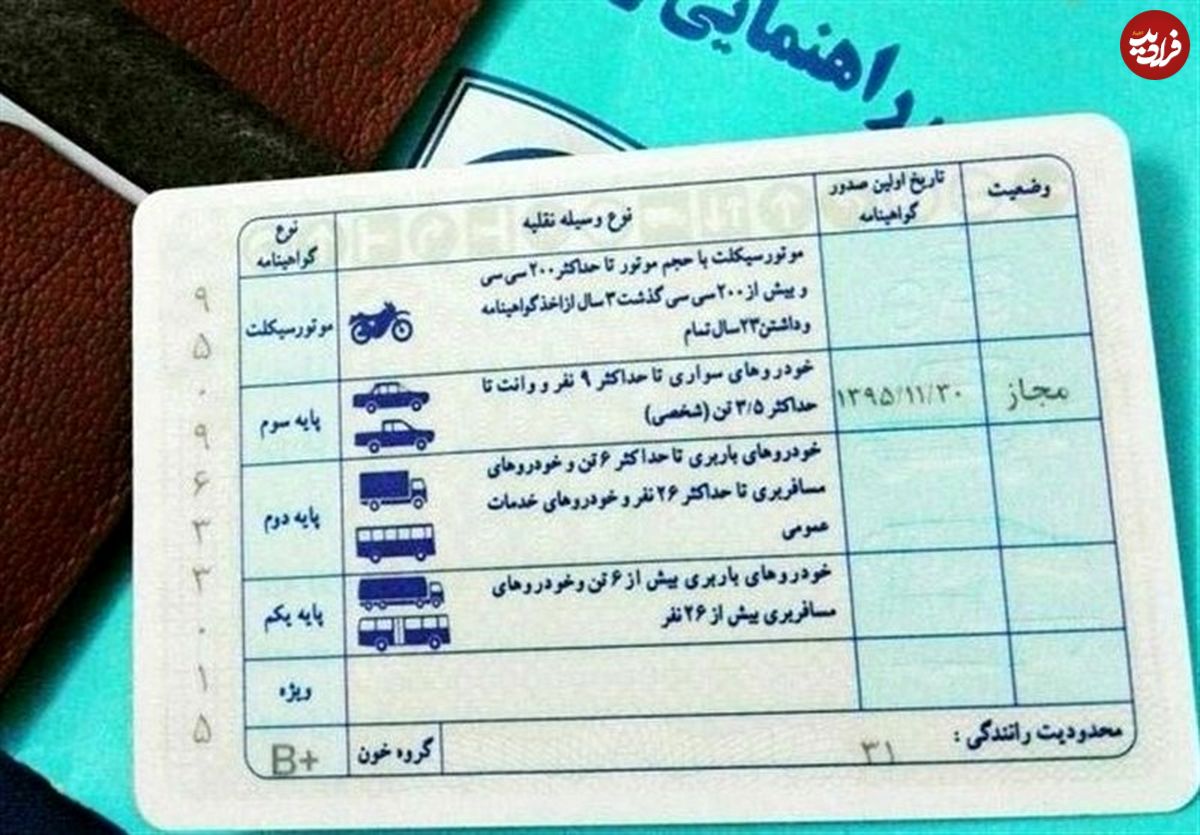 فرارو
راهنمایی
وضعیت
تاریخ اولین صدور
گواهینامه
نوع وسیله نقلیه
نوع
گواهینامه
موتورسیکلت با حجم موتور تا حداکثر ۲۰۰ سی سی
و بیش از ۲۰۰ سی سی گذشت ۳ سال از اخذ گواهینامه
و داشتن ۲۳ سال تمام
موتورسیکلت
مجاز
۱۳۹۵/۱۱/۳۰
خودروهای سواری تا حداکثر ۹ نفر و وانت تا
حداکثر ۳/۵ تن (شخصی)
پایه سوم
خودروهای باربری تا حداکثر ۶ تن و خودروهای
مسافربری تا حداکثر ۲۶ نفر و خودروهای خدمات
عمومی
پایه دوم
خودروهای باربری بیش از ۶ تن و خودروهای
مسافربری بیش از ۲۶ نفر
پایه یکم
ویژه
محدودیت رانندگی :
۳۱
گروه خون
B+
۹
۵
۰
۹
۶
۳
۳
۰
۱
۵